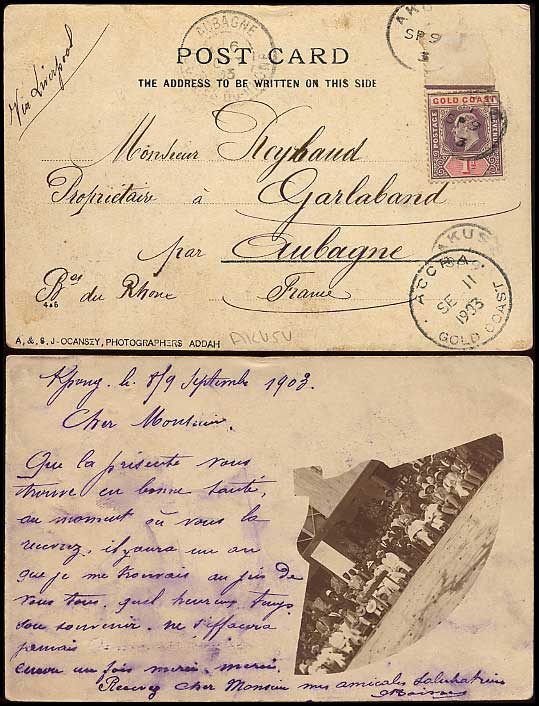 AUBAGNE
AKUSE
SP 9
3
Via Liverpool
POST CARD
THE ADDRESS TO BE WRITTEN ON THIS SIDE
GOLD COAST
POSTAGE REVENUE
1d
Monsieur Reybaud
Propriétaire à Garlaband
par Aubagne
Bes du Rhone France
4a5
AKUSE
ACCRA
SE 11
1903
GOLD COAST
A. & S. J. OCANSEY, PHOTOGRAPHERS ADDAH
AKUSU
Kpong. le 8/9 Septembre 1903.
Cher Monsieur.
Que la présente vous
trouve en bonne santé,
au moment où vous la
recevrez, il y aura un an
que je me trouvais au près de
vous tous, quel heureux temps
son souvenir ne s'effacera
jamais
encore un fois merci. merci.
Recevez Cher Monsieur mes amicales Salutations